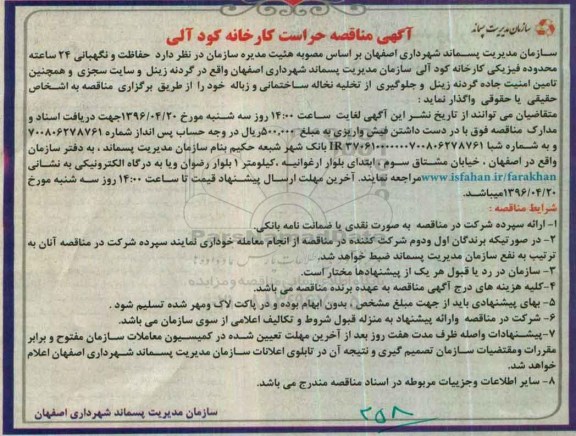 سازمان مدیریت پسماند
آگهی مناقصه حراست کارخانه کود آلی
سازمان مدیریت پسماند شهرداری اصفهان بر اساس مصوبه هئیت مدیره سازمان در نظر دارد حفاظت و نگهبانی ۲۴ ساعته
محدوده فیزیکی کارخانه کود آلی سازمان مدیریت پسماند شهرداری اصفهان واقع در گردنه زینل و سایت سجزی و همچنین
تامین امنیت جاده گردنه زینل و جلوگیری از تخلیه نخاله ساختمانی و زباله خود را از طریق برگزاری مناقصه به اشخاص
حقیقی یا حقوقی واگذار نماید :
متقاضیان می توانند از تاریخ نشر این آگهی لغایت ساعت ۱۴:۰۰ روز سه شنبه مورخ ۱۳۹۶/۰۴/۲۰جهت دریافت اسناد و
مدارک مناقصه فوق با در دست داشتن فیش واریزی به مبلغ ۵۰۰,۰۰۰ریال در وجه حساب پس انداز شماره ۷۰۰۸۰۶۲۷۸۷۶۱
و به شماره شبا IR ۳۷۰۶۱۰۰۰۰۰۰۰۷۰۰۸۰۶۲۷۸۷۶۱ بانک شهر شعبه حکیم بنام سازمان مدیریت پسماند ، به دفتر سازمان
واقع در اصفهان ، خیابان مشتاق سوم ، ابتدای بلوار ارغوانیه ،کیلومتر ۱ بلوار رضوان ویا به درگاه الکترونیکی به نشانی
www.isfahan.ir/farakhanمراجعه نمایند. آخرین مهلت ارسال پیشنهاد قیمت تا ساعت ۱۴:۰۰ روز سه شنبه مورخ
۱۳۹۶/۰۴/۲۰میباشد.
شرایط مناقصه :
۱- ارائه سپرده شرکت در مناقصه به صورت نقدی یا ضمانت نامه بانکی.
۲- در صورتیکه برندگان اول ودوم شرکت کننده در مناقصه از انجام معامله خوداری نمایند سپرده شرکت در مناقصه آنان به
ترتیب به نفع سازمان مدیریت پسماند ضبط خواهد شد.
۳- سازمان در رد یا قبول هر یک از پیشنهادها مختار است.
۴-کلیه هزینه های درج آگهی مناقصه به عهده برنده مناقصه می باشد.
۵- بهای پیشنهادی باید از جهت مبلغ مشخص ، بدون ابهام بوده و در پاکت لاک ومهر شده تسلیم شود .
۶- شرکت در مناقصه وارائه پیشنهاد به منزله قبول شروط و تکالیف اعلامی از سوی سازمان می باشد.
۷-پیشنهادات واصله ظرف مدت هفت روز بعد از آخرین مهلت تعیین شده در کمیسیون معاملات سازمان مفتوح و برابر
مقررات ومقتضیات سازمان تصمیم گیری و نتیجه آن در تابلوی اعلانات سازمان مدیریت پسماند شهرداری اصفهان اعلام
خواهد شد.
۸- سایر اطلاعات وجزییات مربوطه در اسناد مناقصه مندرج می باشد.
سازمان مدیریت پسماند شهرداری اصفهان
۲۵۸